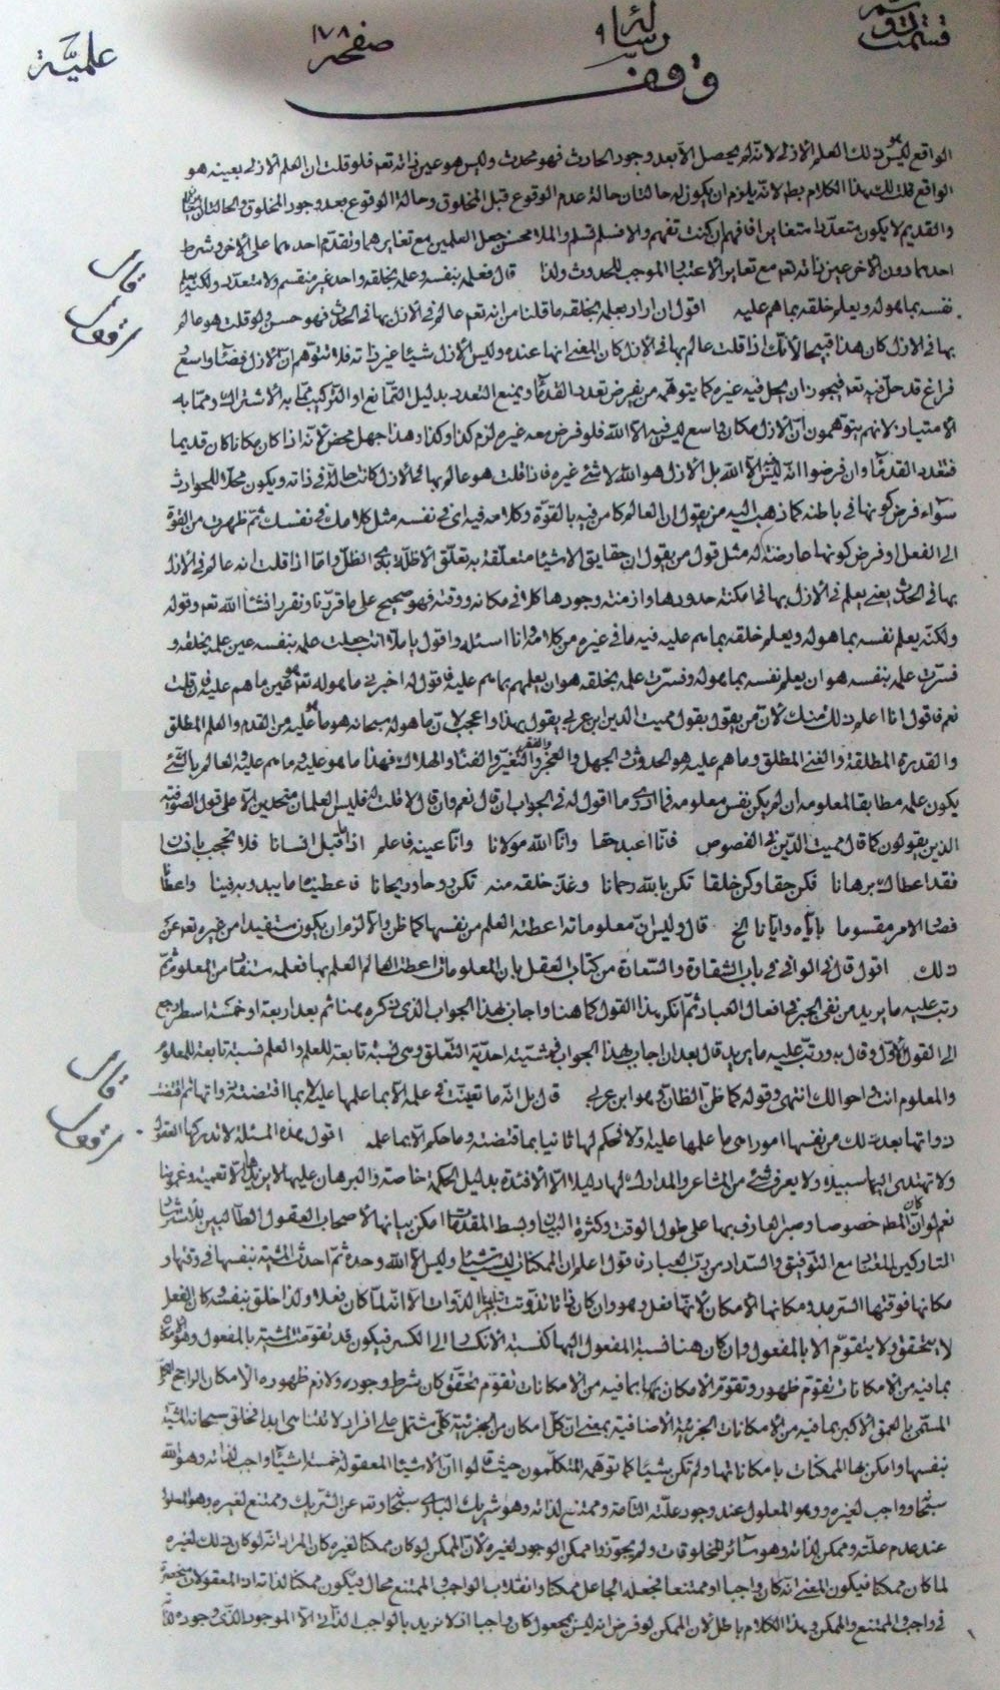 علميّة صفحه ١٧٨ رسالة ٩ قسمت دوم
وقف
الواقع ليس هو ذلك العلم الازلى لانه لم يحصل الا بعد وجود الحادث فهو محدث وليس هو عين ذاته تعم فلو قلت ان العلم الازلى بعينه هو
الواقع قلت لك هذا الكلام بط لانه يلزم ان يكون له حالتان حالة عدم الوقوع قبل المخلوق وحالة الوقوع بعد وجود المخلوق والحالتان
والقديم لا يكون متعددا متغايرا فافهم ان كنت تفهم والا فسلم تسلم والملا محسن جعل العلمين مع تغايرهما وتقدم احدهما على الاخر وشرط
احدهما دون الاخر عين ذاته تعم مع تغاير الاعتبار الموجب للحدوث ولذا قال فعلمه بنفسه وعلمه بخلقه واحد غير منقسم ولا متعدد ولكنه يعلم
نفسه بما هو له ويعلم خلقه بما هم عليه اقول ان اراد بعلمه بخلقه ما قلنا من انه تعم عالم فى الازل بها فى الحدث فهو حسن ولو قلت هو عالم
بها فى الازل كان هذا قبيحا لانك اذا قلت عالم بها فى الازل كان المعنى انها عنده وليس الازل شيئا غير ذاته فلا تتوهم ان الازل فضاء واسع
فراغ قد حل فيه تعم فيجوز ان يحل فيه غيره كما يتوهمه من يفرض تعدد القدماء ويمنع التعدد بدليل التمانع او التركيب مما به الاشتراك ومما به
الامتياز لانهم يتوهمون ان الازل مكان واسع ليس فيه الا الله فلو فرض معه غيره لزم كذا وكذا وهذا جهل محض لانه اذا كان مكانا كان قديما
فتعدد القدماء وان فرضوا انه ليس الا الله بل الازل هو الله لا شئ غيره فاذا قلت هو عالم بها فى الازل كانت حالة فى ذاته ويكون محلا للحوادث
سواء فرض كونها فى باطنه كما ذهب اليه من يقول ان العالم كامن فيه بالقوة وكلامه فيه اى فى نفسه مثل كلامك فى نفسك ثم ظهرت من القوة
الى الفعل او فرض كونها عارضة له مثل قول من يقول ان حقايق الاشياء متعلقة به تعلق الاظلة بذى الظل واما اذا قلت انه عالم فى الازل
بها فى الحدث يعنى يعلم فى الازل بها فى امكنة حدودها وازمنة وجودها كلا فى مكانه ووقته فهو صحيح على ما قررنا ونقرر انشاء الله تعم وقوله
ولكنه يعلم نفسه بما هو له ويعلم خلقه بما هم عليه فيه ما فى غيره من كلامه وانا اسئله واقول يا ملا انت جعلت علمه بنفسه عين علمه بخلقه و
فسرت علمه بنفسه هو ان يعلم نفسه بما هو له وفسرت علمه بخلقه هو ان يعلمهم بما هم عليه فاقول له اخبرنى ما هو له تعم هو عين ما هم عليه فان قلت
نعم فاقول انا اعلم ذلك منك لان من يقول بقول مميت الدين ابن عربى يقول بهذا واعجب لان ما هو له سبحانه هو ما هو عليه من القدم والعلم المطلق
والقدرة المطلقة والغنى المطلق وما هم عليه هو الحدوث والجهل والعجز والفقر والتغير والفناء والهلاك فهذا ما هو عليه وما هم عليه والعالم بالشئ
يكون علمه مطابقا لمعلومه ان لم يكن نفس معلومه فما ادرى ما اقول له فى الجواب ان قال نعم وان قال لا قلت له فليس العلمان متحدين الا على قول الصوفية
الذين يقولون كما قال مميت الدين فى الفصوص فانا اعبد حقا وانا الله مولانا وانا عينه فاعلم اذا ما قيل انسانا فلا تحجب بانسان
فقد اعطاك برهانا فكن حقا وكن خلقا تكن بالله رحمانا وغذ خلقه منه تكن روحا وريحانا فاعطيناه ما يبدو به فينا واعطانا
فصار الامر مقسوما باياه وايانا الخ قال وليس ان معلوماته اعطته العلم من نفسها كما ظن والا لزم ان يكون مستفيدا من غيره تعم عن
ذلك اقول قال فى الوافى فى باب الشقاوة والسعادة من كتاب العقل بان المعلومات اعطت العالم العلم بها فعلمه مستفاد من المعلوم ثم
رتب عليه ما يريد من نفى الجبر فى افعال العباد ثم انكر هذا القول كما هنا واجاب بهذا الجواب الذى ذكره هنا ثم بعد اربعة او خمسة اسطر رجع
الى القول الاول وقال به ورتب عليه ما يريد قال بعد ان اجاب بهذا الجواب فمشيته احدية التعلق وهى نسبة تابعة للعلم والعلم نسبة تابعة للمعلوم
والمعلوم انت واحوالك انتهى وقوله كما ظن الظان هو ابن عربى قال بل انه ما تعينت فى علمه الا بما علمها عليه لا بما اقتضته ذواتها ثم اقتضت
ذواتها بعد ذلك من نفسها امورا هى ما علمها عليه اولا فحكم لها ثانيا بما اقتضته وما حكم الا بما علمه اقول هذه المسئلة لا تدركها العقول
ولا تهتدى اليها سبيلا ولا يعرف شئ من المشاعر والمدارك لها دليلا الا الافئدة بدليل الحكمة خاصة والبرهان عليها لا يزيدها الا تعمية وغموضا
نعم لو كان المط خصوصا وصبر العارف بها على طول الوقت وكثرة البيان وبسط المقدمات امكن بيانها لاصحاب العقول الطالبين للاسترشاد
التاركين للعناد مع التوفيق والسداد من رب العباد فاقول اعلم ان الممكنات ليست شيئا وليس الا الله وحده ثم احدث المشية بنفسها فى وقتها و
مكانها فوقتها السرمد ومكانها الامكان لانها فعل وهو وان كان ذاتا تذوتت الذوات الا انه لما كان فعلا ولذا خلق بنفسه كان الفعل
لا يتحقق ولا يتقوم الا بالمفعول وان كان هنا نسبة المفعول اليها كنسبة الانكسار الى الكسر فيكون قد تقومت المشية بالمفعول وهو الامكان
بما فيه من الامكانات تقوم ظهور وتقوم الامكان بها بما فيه من الامكانات تقوم تحقق كان شرط وجوده ولازم ظهوره الامكان الراجح
المسمى بالعمق الاكبر بما فيه من الامكانات الجزئية الاضافية بمعنى ان كل امكان من الجزئية كلى مشتمل على افراد لا تتناهى ابدا فخلق سبحانه المشية
بنفسها وامكن بها الممكنات بامكاناتها ولم تكن شيئا كما توهمه المتكلمون حيث قالوا ان الاشياء المعقولة خمسة اشياء واجب لذاته وهو الله
سبحانه وواجب لغيره وهو المعلول عند وجود علته التامة وممتنع لذاته وهو شريك البارى سبحانه وتعم عن الشريك وممتنع لغيره وهو المعلول
عند عدم علته وممكن لذاته وهو سائر المخلوقات ولم يجوزوا ممكن الوجود لغيره لان الممكن لو كان ممكنا لغيره كان المراد انه لو كان ذلك لغيره
لما كان ممكنا فيكون المعنى انه كان واجبا او ممتنعا فجعله الجاعل ممكنا وانقلاب الواجب والممتنع محال فيكون ممكنا لذاته اذ المعقولات منحصرة
فى واجب والممتنع والممكن وهذا الكلام باطل لان الممكن لو فرض انه ليس بمجعول كان واجبا اذ لا نريد بالواجب الذاتى الا الموجود الذى وجوده
قال
قال